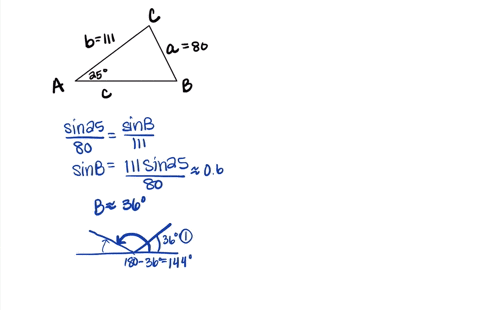 C
b=111
a=80
A
25°
B
c
sin25/80 = sinB/111
sinB= 111sin25/80 ≈ 0.6
B≈ 36°
36° ①
180-36°=144°